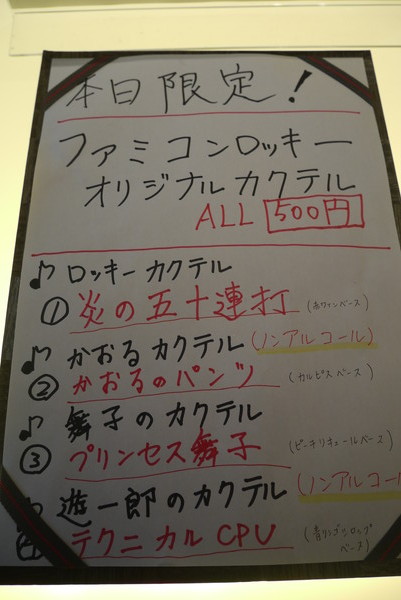 本日限定!
ファミコンロッキー
オリジナルカクテル
ALL 500円
♪ロッキーカクテル
① 炎の五十連打 (赤ワインベース)
♪かおるカクテル (ノンアルコール)
② かおるのパンツ (カルピスベース)
♪舞子のカクテル
③ プリンセス舞子 (ピーチリキュールベース)
♪遊一郎のカクテル (ノンアルコール
④ テクニカルCPU (青リンゴシロップ
ベース)